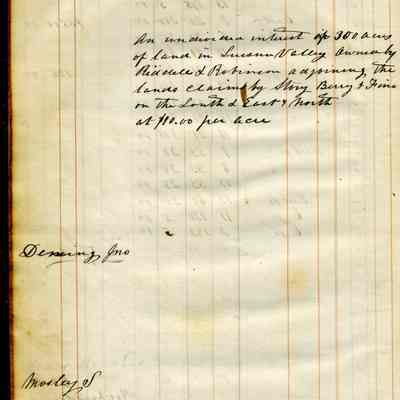 An undivided interest of 300 acres
of land in Suisun Valley Owned by
Riddell & Robinson adjoining the
lands claimed by Story Berry & Fine
on the South & East & North
at $10.00 per acre
Deming, Jno
Mosley S